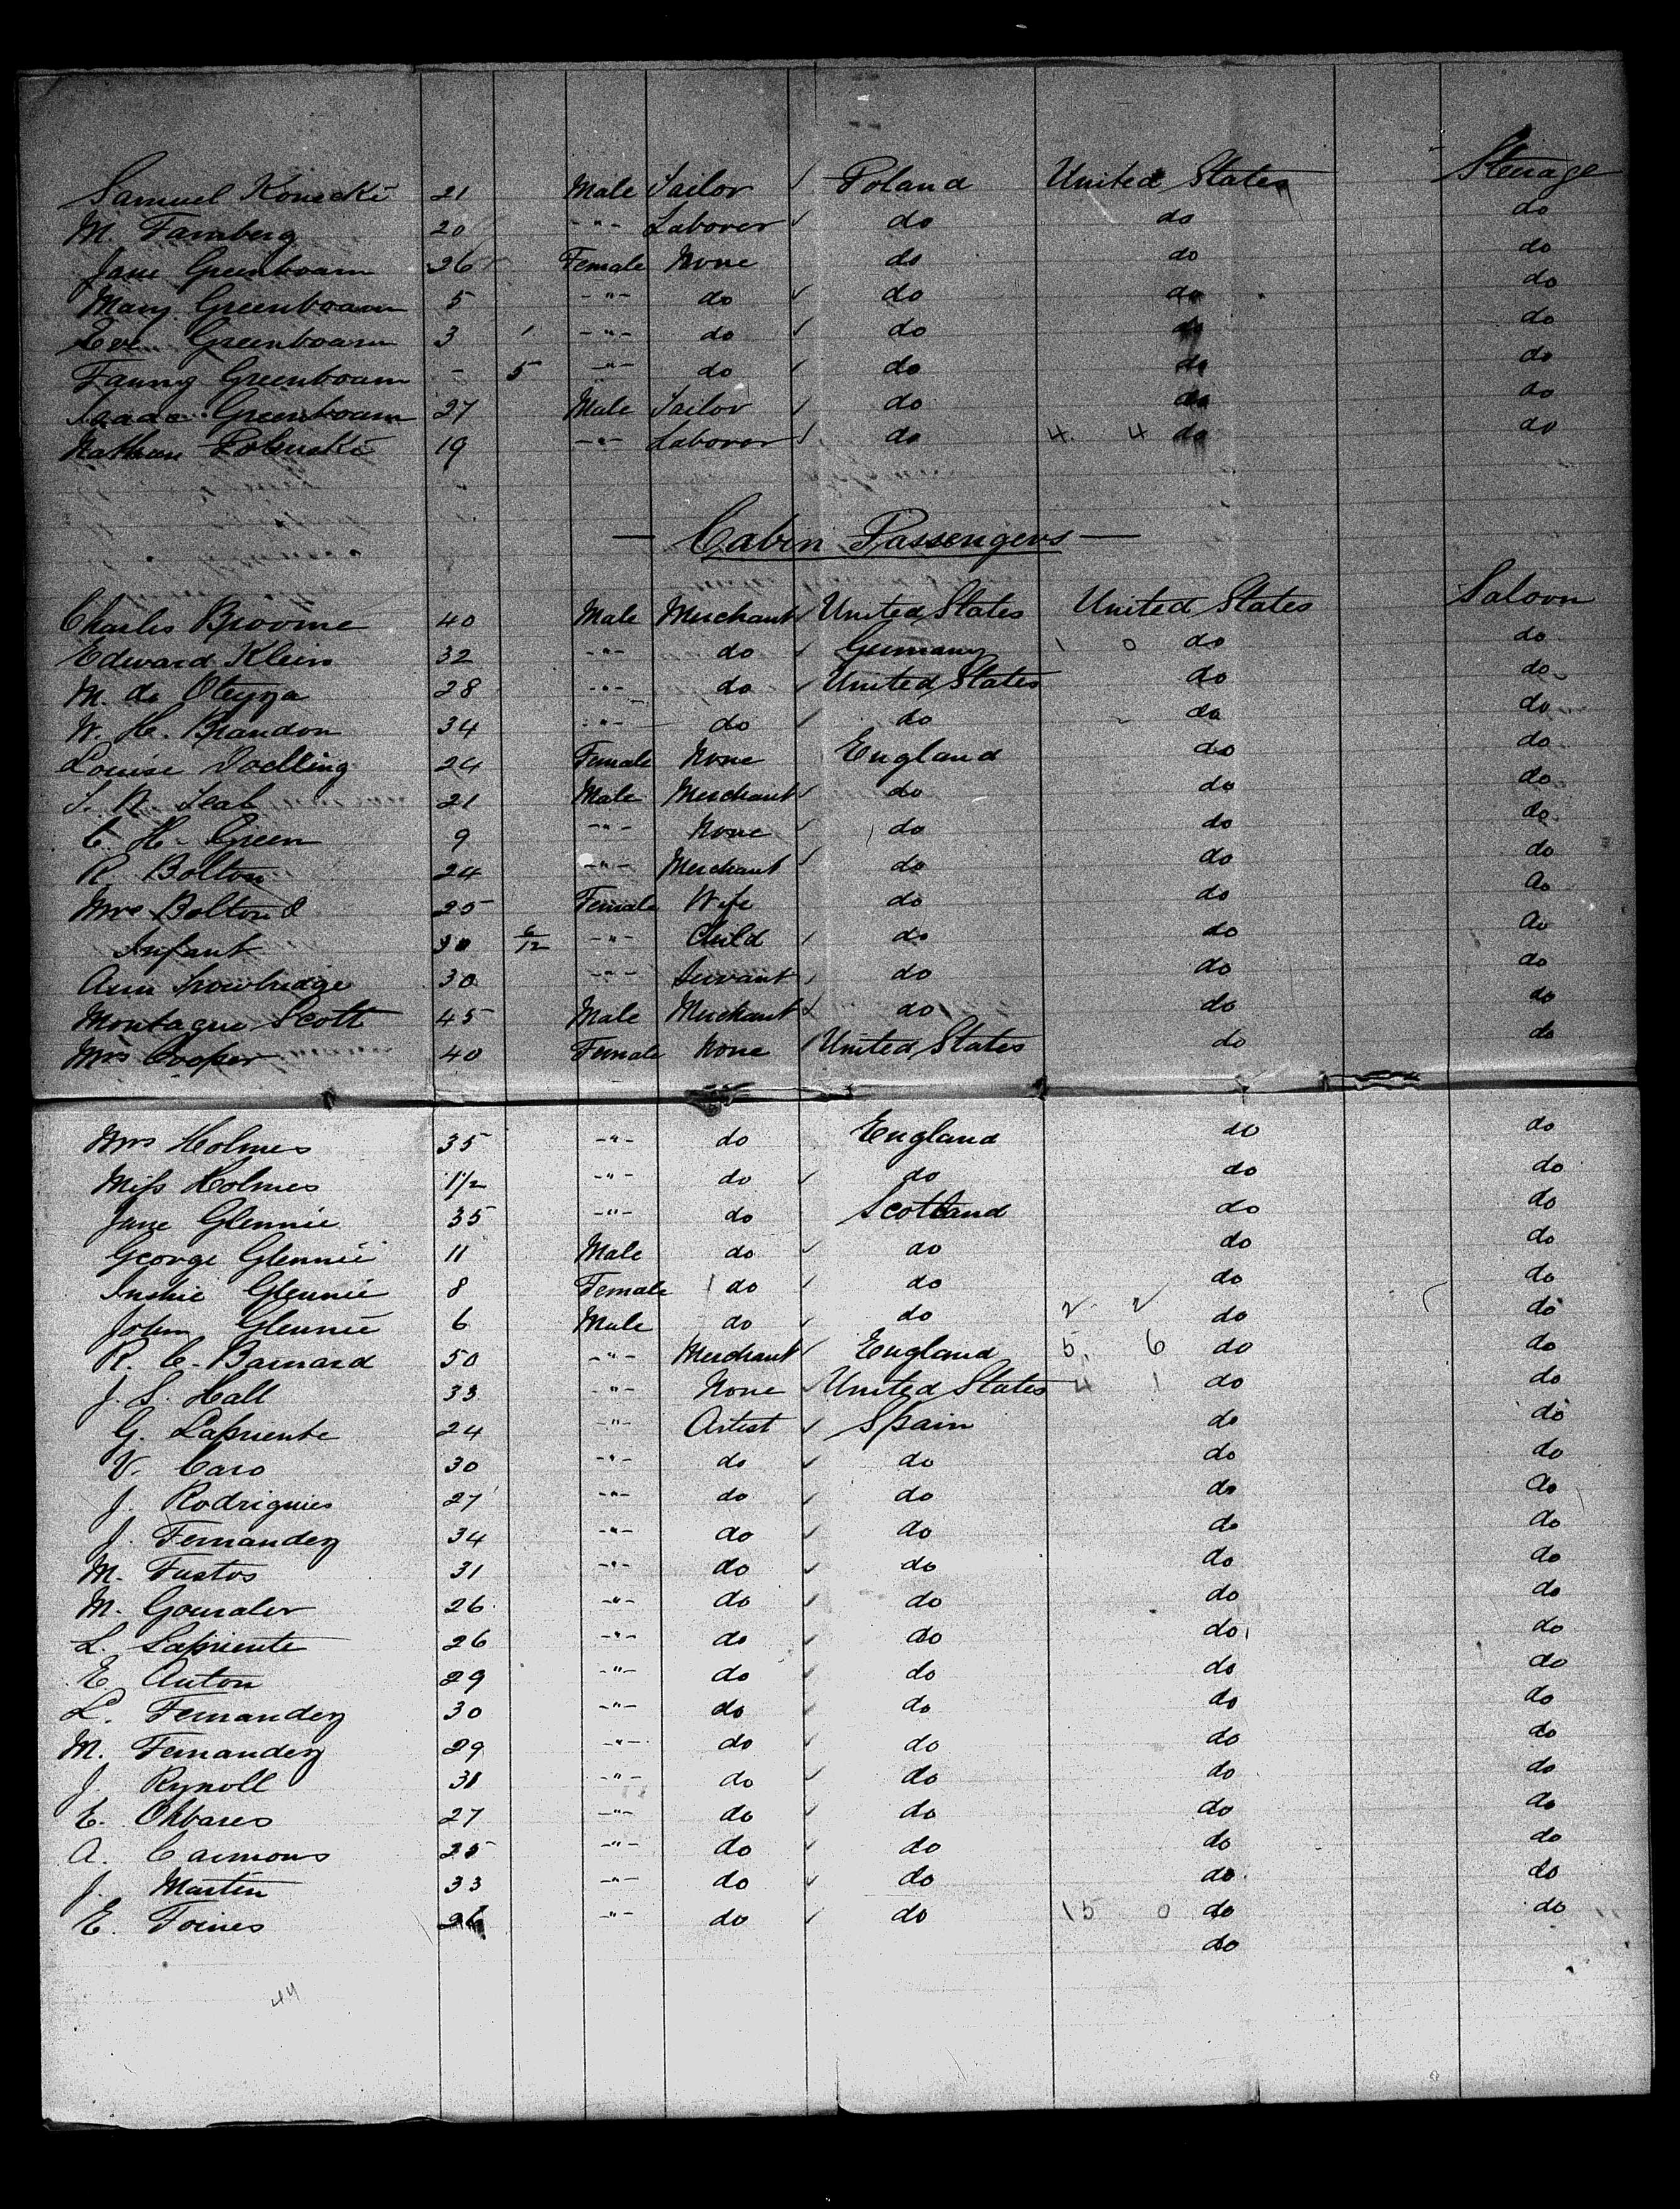 Samuel Konecki 21 Male Tailor Poland United States Steerage
M. Famberg 20 -"- Laborer do do do
Jane Greenboam 26 Female None do do do
Mary Greenboam 5 -"- do do do do
Eve Greenboam 3 -"- do do do do
Fanny Greenboam - 5 -"- do do do do
Isaac Greenboam 27 Male Tailor do do do
Nathan 19 -"- Laborer do 4. 4 do do
— Cabin Passengers —
Charles Broome 40 Male Merchant United States United States Saloon
Edward Klein 32 -"- do Germany 1 0 do do
M. de Oteyza 28 -"- do United States do do
W. H. Brandon 34 -"- do do do do
Louise Doelling 24 Female None England do do
S. N. Seal 21 Male Merchant do do do
C. H. Green 9 -"- None do do do
R. Bolton 24 -"- Merchant do do do
Mrs Bolton & 25 Female Wife do do do
Infant 6/12 -"- Child do do do
Ann Trowbridge 30 -"- Servant do do do
Montague Scott 45 Male Merchant do do do
Mrs Cooper 40 Female None United States do do
Mrs Holmes 35 -"- do England do do
Miss Holmes 1½ -"- do do do do
Jane Glennie 35 -"- do Scotland do do
George Glennie 11 Male do do do do
Inshie Glennie 8 Female do do do do
John Glennie 6 Male do do 2 2 do do
R. C. Barnard 50 -"- Merchant England 5. 6 do do
J. S. Hall 33 -"- None United States 4 1 do do
G. Lapuente 24 -"- Artist Spain do do
V. Caro 30 -"- do do do do
J. Rodriguies 27 -"- do do do do
J. Fernandez 34 -"- do do do do
M. Fustos 31 -"- do do do do
M. Gonsaler 26 -"- do do do do
L. Lapuente 26 -"- do do do do
E. Anton 29 -"- do do do do
L. Fernandez 30 -"- do do do do
M. Fernandez 29 -"- do do do do
J. Rynoll 31 -"- do do do do
E. Olivares 27 -"- do do do do
A. Carmons 25 -"- do do do do
J. Martin 33 -"- do do do do
E. Foines 26 -"- do do 15 0 do do
do
44